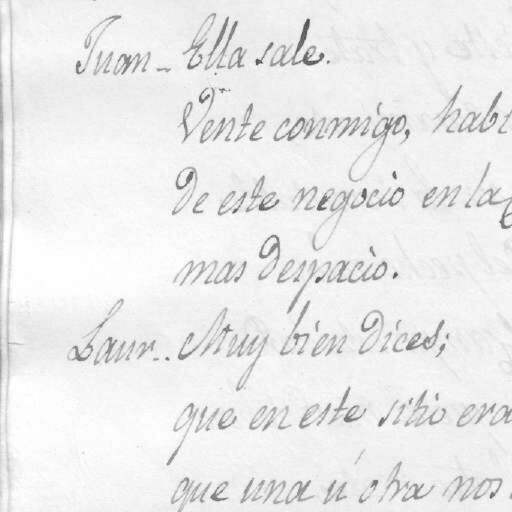 Juan_ Ella sale.
Vente conmigo, hab
de este negocio en la
mas despacio.
Laur.. Muy bien dices;
que en este sitio era
que una ú otra nos